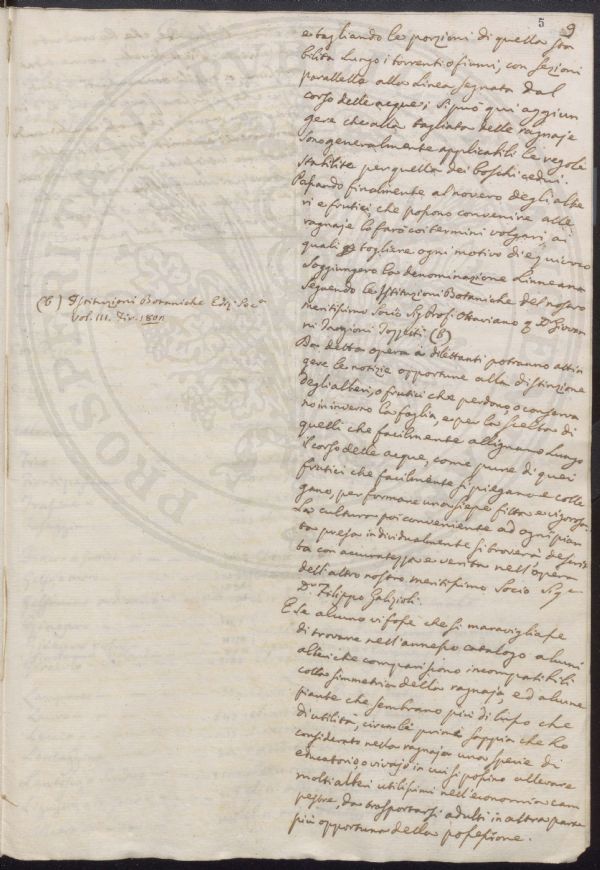 5 9
e tagliando le porzioni di quella sta
bilita lungo i torrenti o fiumi, con sezioni
parallelle alla linea segnata dal
corso delle acque; si può qui aggiun
gere che alla tagliata delle ragnaje
sono generalmente applicabili le regole
stabilite per quella dei boschi cedui.
Passando finalmente al novero degli albe
ri e frutici, che possono convenire alle
ragnaje lo farò coi termini volgari, ai
quali p togliere ogni motivo di equivoco
soggiungerò la denominazione Linneana
seguendo le Istituzioni Botaniche del nostro
meritissimo Socio Sig Prof. Ottaviano D Giovan
ni Targioni Tozzetti (b)
(b) Istituzioni Botaniche Ediz. Sec.a
Vol. III. Fir. 1802
Da detta opera i dilettanti potranno attin
gere le notizie opportune alla distinzione
degli alberi, o frutici che perdono o conserva
no in inverno la foglia, e per la scelta di
quelli che facilmente allignano lungo
il corso delle acque, come pure di quei
frutici che facilmente si piegano e colle
gano, per formare una siepe fitta e vigorosa.
La cultura poi conveniente ad ogni pian
ta presa individualmente si troverà descrit
ta con accuratezza e verità nell'opera
dell'altro nostro meritissimo Socio Sig.e
D. Filippo Gallizioli.
E se alcuno vi fosse che si maravigliasse
di trovare nell'annesso catalogo alcuni
alberi che compariscono incompatibili
colla simmetria della ragnaja, ed alcune
piante che sembrano più di lusso che
di utilità, circa le prime sappia che ho
considerato nella ragnaja una specie di
educatorio, o vivajo in cui si possino allevare
molti alberi utilissimi nell'economia cam
pestre, da trasportarsi adulti in altra parte
più opportuna della possessione.
PROSPERITÀ